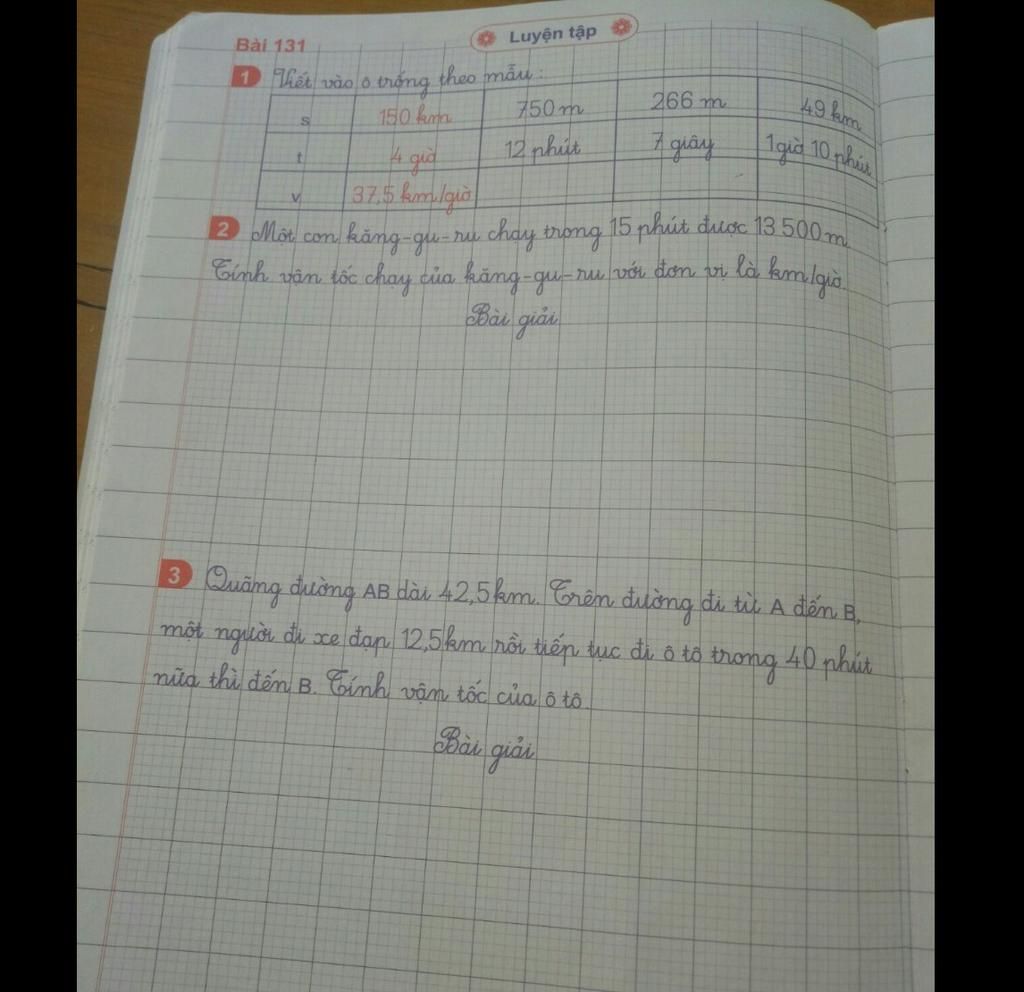 Bài 131
Luyện tập
1 Viết vào ô trống theo mẫu:
s 150 km 750 m 266 m 49 km
t 4 giờ 12 phút 7 giây 1 giờ 10 phút
v 37,5 km/giờ
2 Một con kăng-gu-ru chạy trong 15 phút được 13 500 m.
Tính vận tốc chạy của kăng-gu-ru với đơn vị là km/giờ.
Bài giải
3 Quãng đường AB dài 42,5 km. Trên đường đi từ A đến B,
một người đi xe đạp 12,5 km rồi tiếp tục đi ô tô trong 40 phút
nữa thì đến B. Tính vận tốc của ô tô.
Bài giải